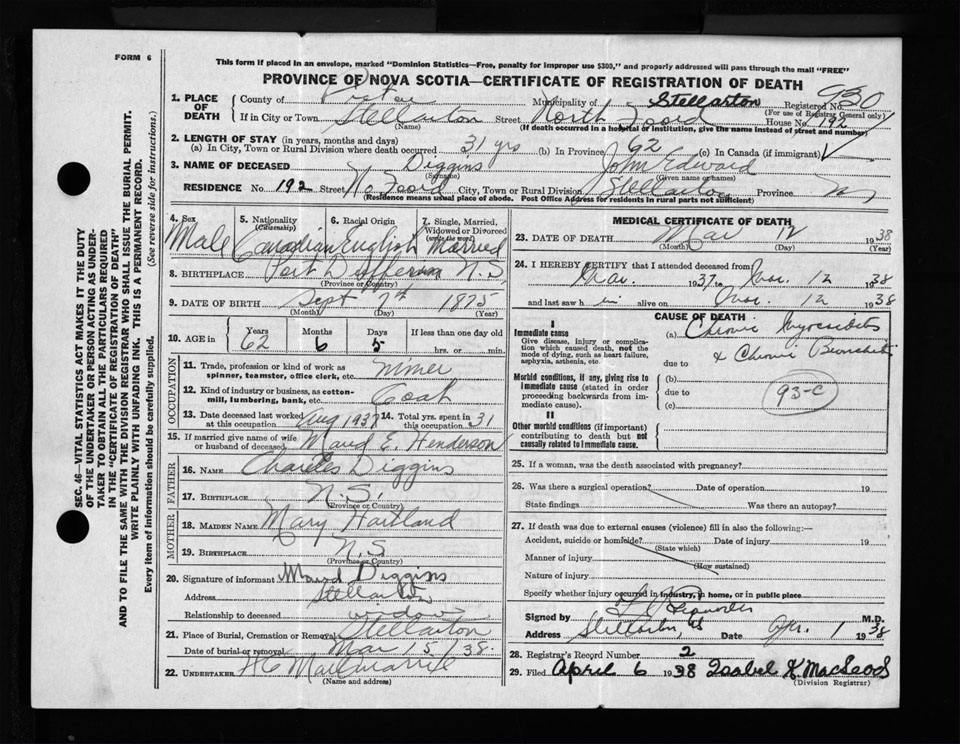 FORM 6
This form if placed in an envelope, marked "Dominion Statistics—Free, penalty for improper use $300," and properly addressed will pass through the mail "FREE"
PROVINCE OF NOVA SCOTIA—CERTIFICATE OF REGISTRATION OF DEATH
930
1. PLACE OF DEATH
County of Pictou Municipality of Stellarton Registered No.
(For use of Registrar General only)
If in City or Town Stellarton Street North Foord House No. 192
(Name) (If death occurred in a hospital or institution, give the name instead of street and number)
2. LENGTH OF STAY (in years, months and days)
(a) In City, Town or Rural Division where death occurred 31 yrs (b) In Province 62 (c) In Canada (if immigrant)
3. NAME OF DECEASED Diggins John Edward
(Surname) (Given name or names)
RESIDENCE No. 192 Street No Foord City, Town or Rural Division Stellarton Province
(Residence means usual place of abode. Post Office Address for residents in rural parts not sufficient)
4. Sex
Male
5. Nationality
(Citizenship)
Canadian
6. Racial Origin
English
7. Single, Married, Widowed or Divorced
(write the word)
Married
8. BIRTHPLACE Port Dufferin N.S
(Province or Country)
9. DATE OF BIRTH Sept 7th 1875
(Month) (Day) (Year)
10. AGE in
Years Months Days If less than one day old
62 6 5 hrs. or min.
OCCUPATION
11. Trade, profession or kind of work as spinner, teamster, office clerk, etc. miner
12. Kind of industry or business, as cotton-mill, lumbering, bank, etc. Coal
13. Date deceased last worked at this occupation Aug 1937
14. Total yrs. spent in this occupation 31
15. If married give name of wife or husband of deceased Maud E. Henderson
FATHER
16. NAME Charles Diggins
17. BIRTHPLACE N.S.
(Province or Country)
MOTHER
18. MAIDEN NAME Mary Hartland
19. BIRTHPLACE N.S
(Province or Country)
20. Signature of informant Maud Diggins
Address Stellarton
Relationship to deceased widow
21. Place of Burial, Cremation or Removal Stellarton
Date of burial or removal Mar 15/38.
22. UNDERTAKER
(Name and address)
MEDICAL CERTIFICATE OF DEATH
23. DATE OF DEATH Mar 12 1938
(Month) (Day) (Year)
24. I HEREBY CERTIFY that I attended deceased from
Mar. 1937 to Mar. 12 1938
and last saw h im alive on Mar. 12 1938
CAUSE OF DEATH
I
Immediate cause
Give disease, injury or complication which caused death, not the mode of dying, such as heart failure, asphyxia, asthenia, etc.
(a) Chronic Myocarditis
due to & Chronic Bronchitis
Morbid conditions, if any, giving rise to immediate cause (stated in order proceeding backwards from immediate cause).
(b)
due to
(c)
93-c
II
Other morbid conditions (if important) contributing to death but not causally related to immediate cause.
25. If a woman, was the death associated with pregnancy?
26. Was there a surgical operation? Date of operation 19
State findings Was there an autopsy?
27. If death was due to external causes (violence) fill in also the following:—
Accident, suicide or homicide? Date of injury 19
(State which)
Manner of injury
(How sustained)
Nature of injury
Specify whether injury occurred in industry, in home, or in public place
Signed by M.D.
Address Stellarton, NS Date Apr. 1 1938
28. Registrar's Record Number 2
29. Filed April 6 1938 Isabel K. MacLeod
(Division Registrar)
SEC. 46—VITAL STATISTICS ACT MAKES IT THE DUTY
OF THE UNDERTAKER OR PERSON ACTING AS UNDER-
TAKER TO OBTAIN ALL THE PARTICULARS REQUIRED
IN THE "CERTIFICATE OF REGISTRATION OF DEATH"
AND TO FILE THE SAME WITH THE DIVISION REGISTRAR WHO SHALL ISSUE THE BURIAL PERMIT.
WRITE PLAINLY WITH UNFADING INK. THIS IS A PERMANENT RECORD.
Every item of information should be carefully supplied. (See reverse side for instructions.)